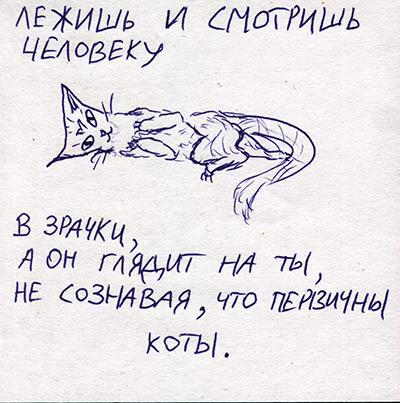 ЛЕЖИШЬ И СМОТРИШЬ
ЧЕЛОВЕКУ
В ЗРАЧКИ,
А ОН ГЛЯДИТ НА ТЫ,
НЕ СОЗНАВАЯ, ЧТО ПЕРВИЧНЫ
КОТЫ.